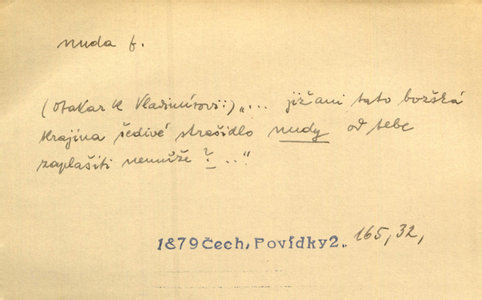 nuda f.
(Otakar k Vladimírovi:) „... již ani tato božská
krajina šedivé strašidlo nudy od tebe
zaplašiti nemůže? ..."
1879 Čech, Povídky 2. 165, 32,